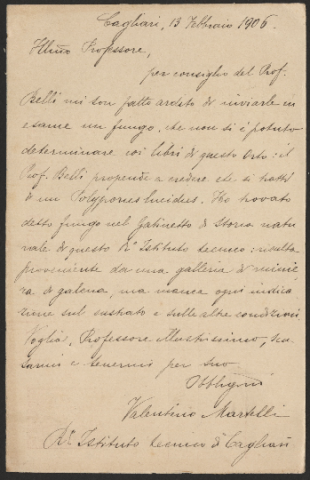 Cagliari, 13 Febbraio 1906.
Illmo Professore,
per consiglio del Prof.
Belli mi son fatto ardito di inviarle in
esame un fungo, che non si è potuto
determinare coi libri di questo Orto: il
Prof. Belli propende a credere che si tratti
di un Polyporus lucidus. Ho trovato
detto fungo nel Gabinetto di Storia natu
rale di questo R.o Istituto tecnico: risulta
proveniente da una galleria di minie
ra di galena, ma manca ogni indica
zione sul substrato e sulle altre condizioni
Voglia, Professore Illustrissimo, scu
sarmi e tenermi per suo
Obbligmo
Valentino Martelli
R.o Istituto tecnico di Cagliari